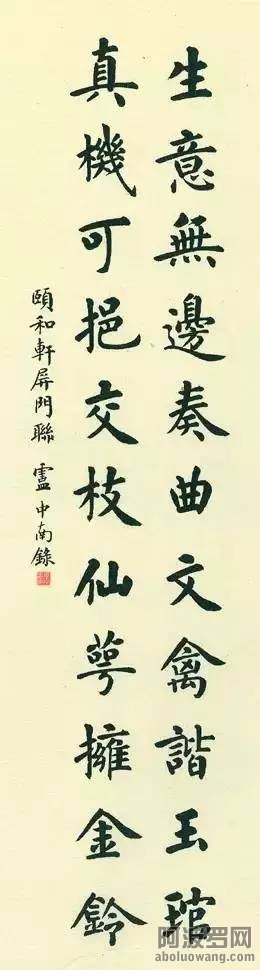 生意無邊奏曲文禽諧玉琯
真機可挹交枝仙萼擁金鈴
頤和軒屏門聯 盧中南錄
阿波罗网
aboluowang.com